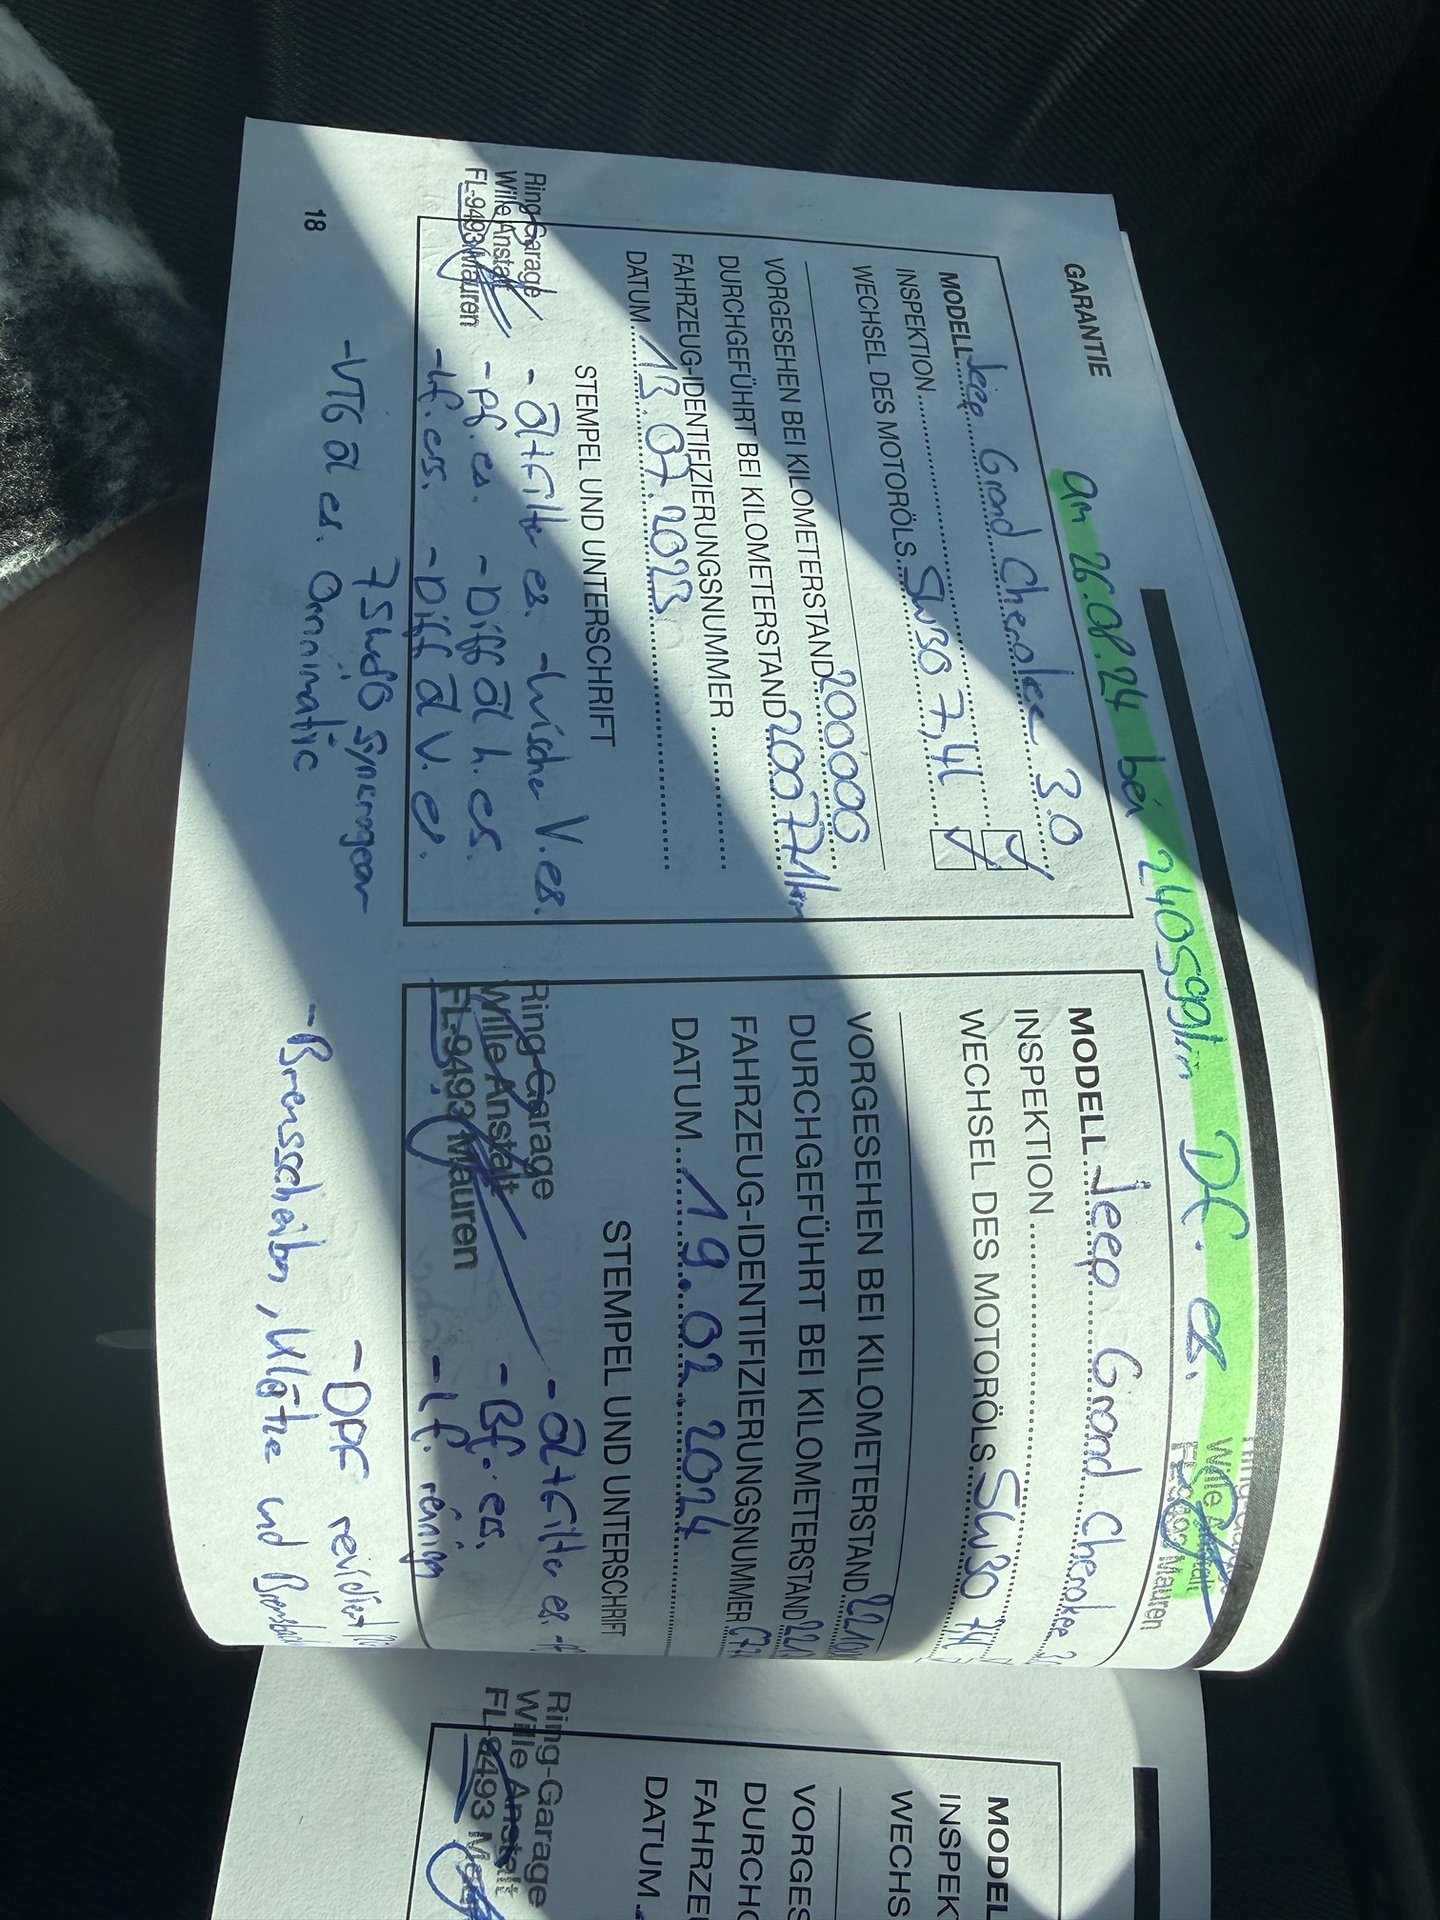 GARANTIE
am 26.08.24 bei 240591km DC. es.
Wille Anstalt
Mauren
MODELL Jeep Grand Cherokee 3.0
INSPEKTION
WECHSEL DES MOTORÖLS 5W30 7,4L
VORGESEHEN BEI KILOMETERSTAND 200'000
DURCHGEFÜHRT BEI KILOMETERSTAND 200771km
FAHRZEUG-IDENTIFIZIERUNGSNUMMER
DATUM 13.07.2023
STEMPEL UND UNTERSCHRIFT
Ring-Garage
Wille Anstalt
FL-9493 Mauren
- Öl+Filter es. - Wischer V. es.
- Pf. es. - Diff Öl h. es.
- Lf. es. - Diff Öl V. es.
75W80 Syncrogear
- VTG Öl es. Omnimatic
18
MODELL Jeep Grand Cherokee
INSPEKTION
WECHSEL DES MOTORÖLS 5W30
VORGESEHEN BEI KILOMETERSTAND
DURCHGEFÜHRT BEI KILOMETERSTAND
FAHRZEUG-IDENTIFIZIERUNGSNUMMER
DATUM 19.02.2024
STEMPEL UND UNTERSCHRIFT
Ring-Garage
Wille Anstalt
FL-9493 Mauren
- Öl+Filter es.
- Bf. es.
- Lf. reinigen
- DPF revidiert
- Bremsscheiben, Klötze und
MODEL
INSPEK
WECHS
VORGES
DURCHG
FAHRZE
DATUM
Ring-Garage
Wille Anstalt
FL-9493